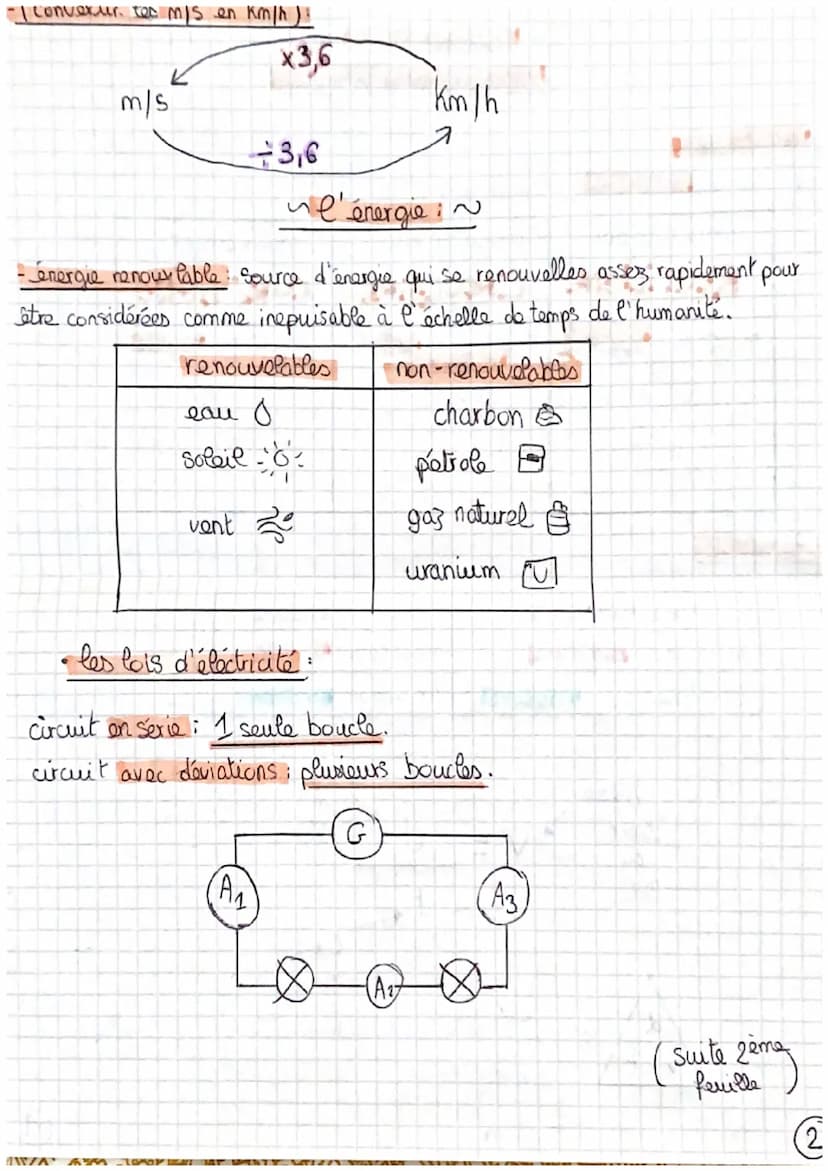 m/s en Km/h):
x3,6
m/s Km/h
÷3,6
~ l'énergie : ~
- énergie renouvlable: Source d'énergie qui se renouvelles assez rapidement pour
être considérées comme inepuisable à l'échelle de temps de l'humanité.
renouvelables non-renouvelables
eau charbon
soleil pétrole
vent gaz naturel
uranium U
• les lois d'éléctricité :
circuit en série : 1 seule boucle.
circuit avec déviations : plusieurs boucles.
G
A1 A3
A2
(suite 2ème
feuille)
2